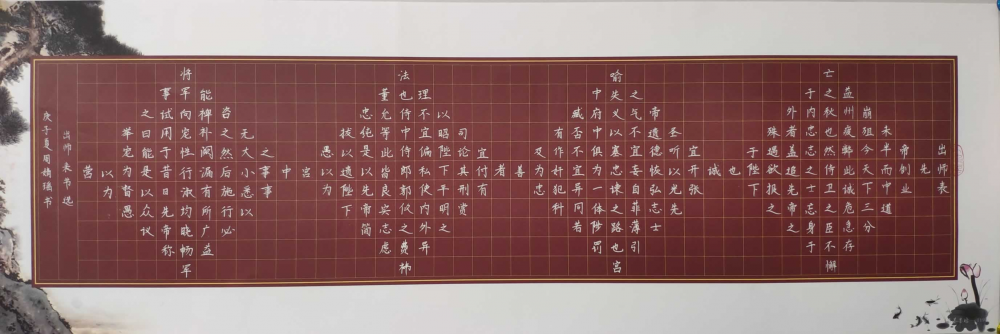 出师表
先
帝创业
未半而中道
崩殂今天下三分
益州疲弊此诚危急存
亡之秋也然侍卫之臣不懈
于内忠志之士忘身于
外者盖追先帝之
殊遇欲报之
于陛下
也
诚
宜开张
圣听以光先
帝遗德恢弘志士
之气不宜妄自菲薄引
喻失义以塞忠谏之路也宫
中府中俱为一体陟罚
臧否不宜异同若
有作奸犯科
及为忠
善
者
宜付有
司论其刑赏
以昭陛下平明之
理不宜偏私使内外异
法也侍中侍郎郭攸之费祎
董允等此皆良实志虑
忠纯是以先帝简
拔以遗陛下
愚以为
宫
中
之事事
无大小悉以
咨之然后施行必
能裨补阙漏有所广益
将军向宠性行淑均晓畅军
事试用于昔日先帝称
之曰能是以众议
举宠为督愚
以为
营
出师表节选
庚子夏周婧瑶书